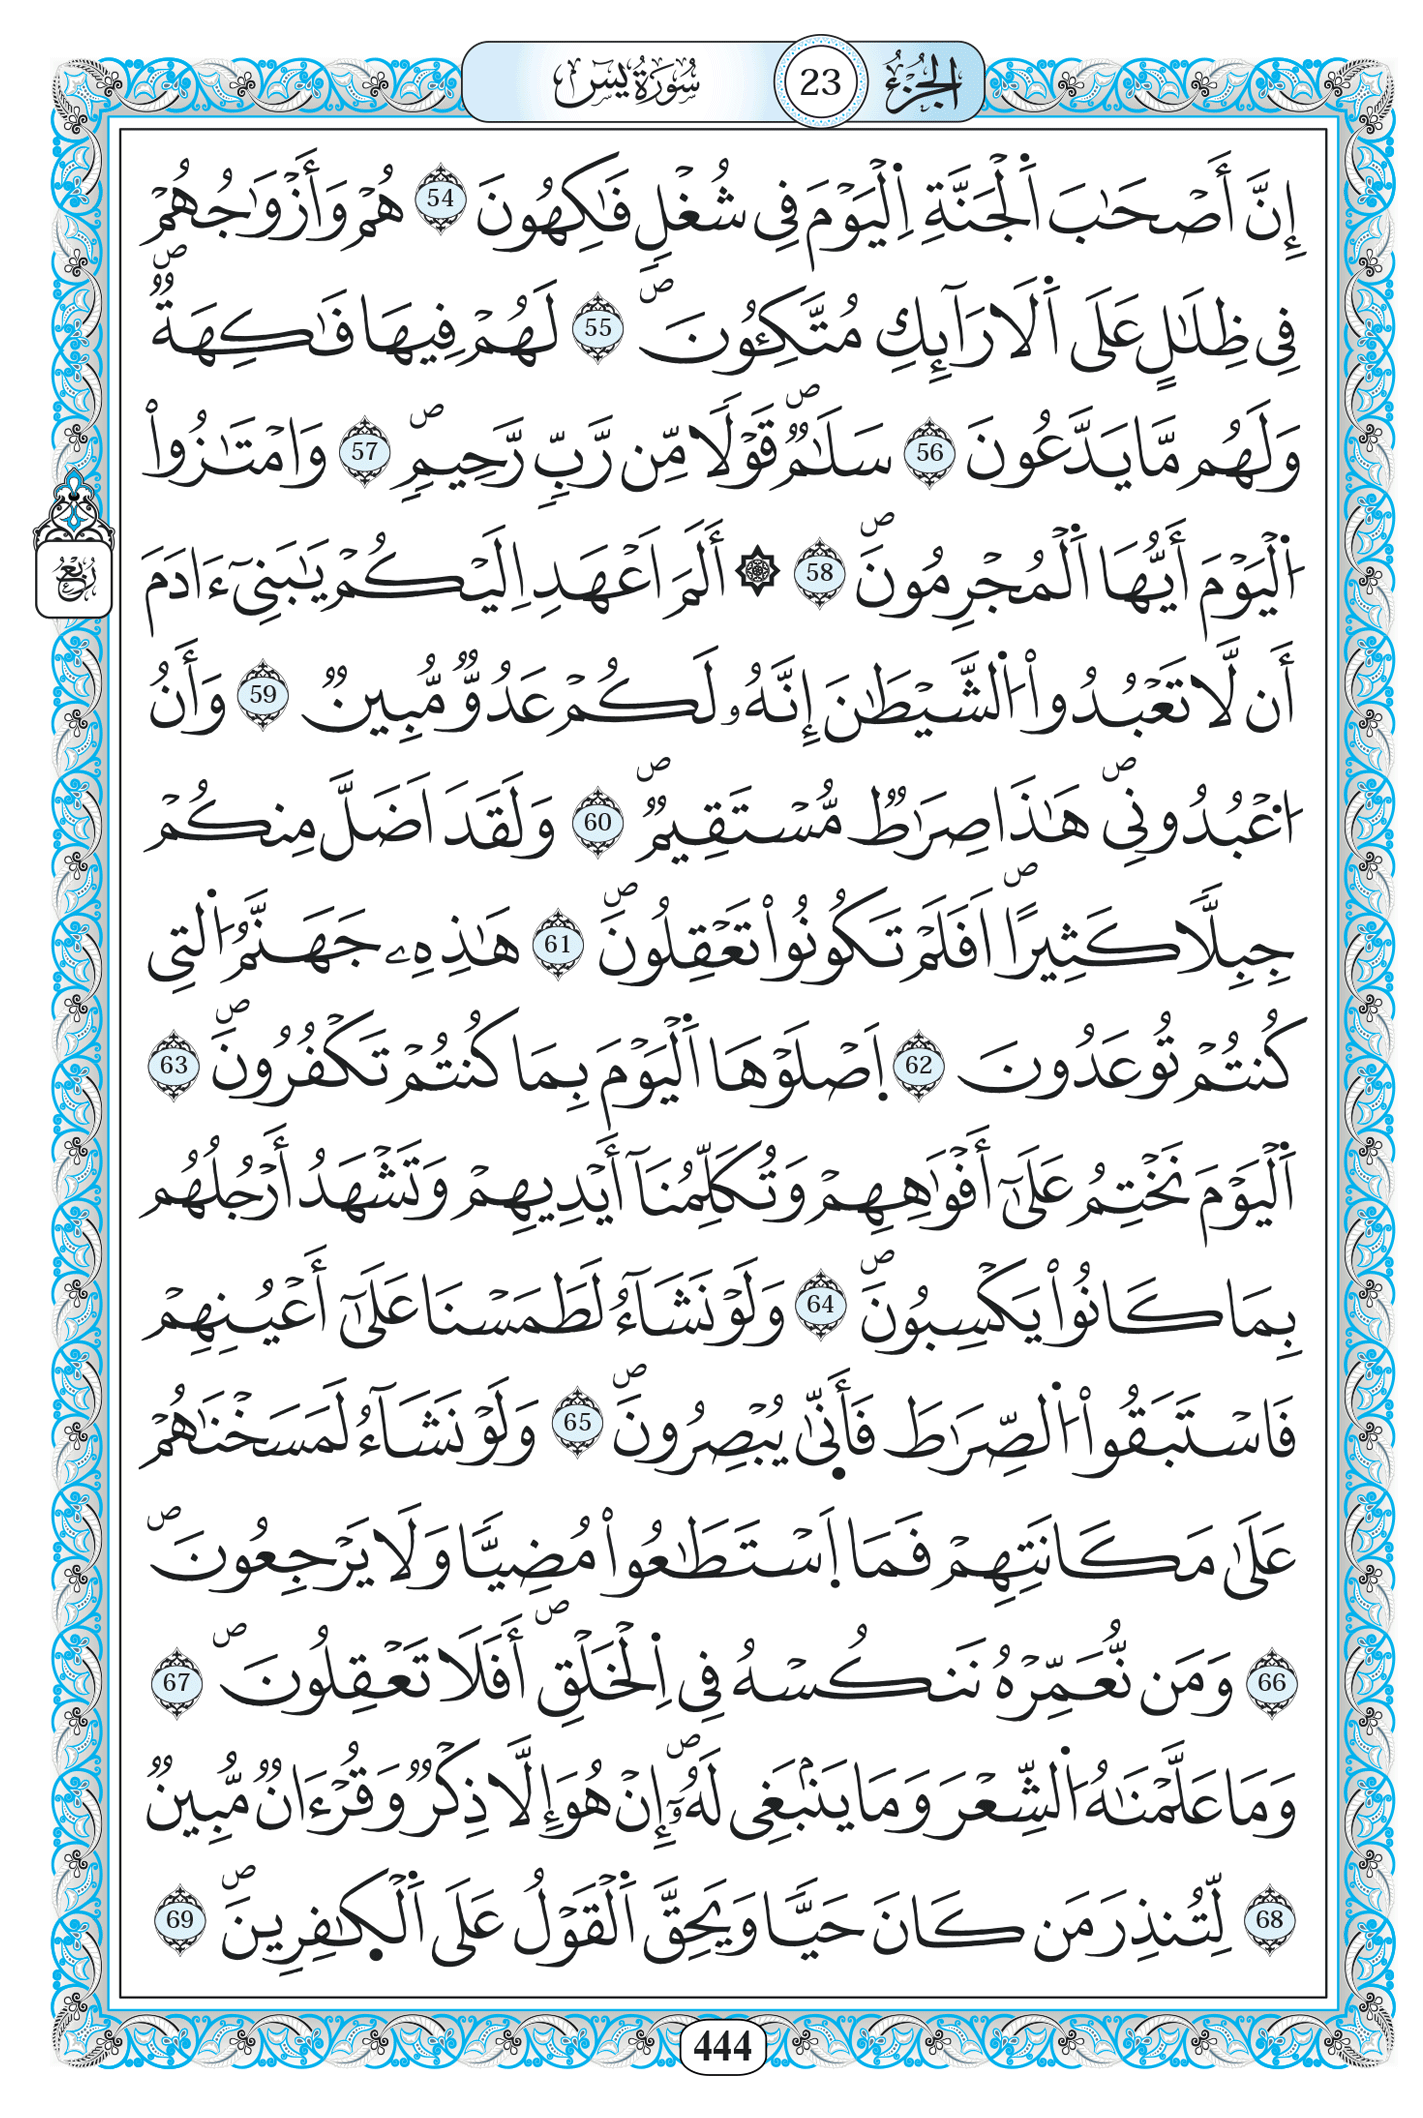 الجزء 23 سورة يس
إِنَّ أَصْحَٰبَ اَ۬لْجَنَّةِ اِ۬لْيَوْمَ فِى شُغْلٍ فَٰكِهُونَ 54 هُمْ وَأَزْوَٰجُهُمْ
فِى ظِلَٰلٍ عَلَى اَ۬لَارَآئِكِ مُتَّكِـُٔونَ ص 55 لَهُمْ فِيهَا فَٰكِهَةٌ ص
وَلَهُم مَّا يَدَّعُونَ 56 سَلَٰمٌ ص قَوْلًا مِّن رَّبٍّ رَّحِيمٍ ص 57 وَامْتَٰزُواْ
اُ۬لْيَوْمَ أَيُّهَا اَ۬لْمُجْرِمُونَ ص 58 ۞ أَلَمَ اَعْهَدِ اِلَيْكُمْ يَٰبَنِىٓ ءَادَمَ
أَن لَّا تَعْبُدُواْ اُ۬لشَّيْطَٰنَ إِنَّهُۥ لَكُمْ عَدُوٌّ مُّبِينٌ 59 وَأَنُ
اُ۟عْبُدُونِى ص هَٰذَا صِرَٰطٌ مُّسْتَقِيمٌ ص 60 وَلَقَدَ اَضَلَّ مِنكُمْ
جِبِلًّا كَثِيرًا ص اَفَلَمْ تَكُونُواْ تَعْقِلُونَ ص 61 هَٰذِهِۦ جَهَنَّمُ اُ۬لتِى
كُنتُمْ تُوعَدُونَ 62 اِ۪صْلَوْهَا اَ۬لْيَوْمَ بِمَا كُنتُمْ تَكْفُرُونَ ص 63
اَ۬لْيَوْمَ نَخْتِمُ عَلَىٰٓ أَفْوَٰهِهِمْ وَتُكَلِّمُنَآ أَيْدِيهِمْ وَتَشْهَدُ أَرْجُلُهُم
بِمَا كَانُواْ يَكْسِبُونَ ص 64 وَلَوْ نَشَآءُ لَطَمَسْنَا عَلَىٰٓ أَعْيُنِهِمْ
فَاسْتَبَقُواْ اُ۬لصِّرَٰطَ فَأَنّ۪ىٰ يُبْصِرُونَ ص 65 وَلَوْ نَشَآءُ لَمَسَخْنَٰهُمْ
عَلَىٰ مَكَانَتِهِمْ فَمَا اَ۪سْتَطَٰعُواْ مُضِيًّا وَلَا يَرْجِعُونَ ص
66 وَمَن نُّعَمِّرْهُ نَنكُسْهُ فِى اِ۬لْخَلْقِ ص أَفَلَا تَعْقِلُونَ ص 67
وَمَا عَلَّمْنَٰهُ اُ۬لشِّعْرَ وَمَا يَنۢبَغِى لَهُۥٓ ص إِنْ هُوَ إِلَّا ذِكْرٌ وَقُرْءَانٌ مُّبِينٌ
68 لِّتُنذِرَ مَن كَانَ حَيًّا وَيَحِقَّ اَ۬لْقَوْلُ عَلَى اَ۬لْكٰ۪فِرِينَ ص 69
ربع
444